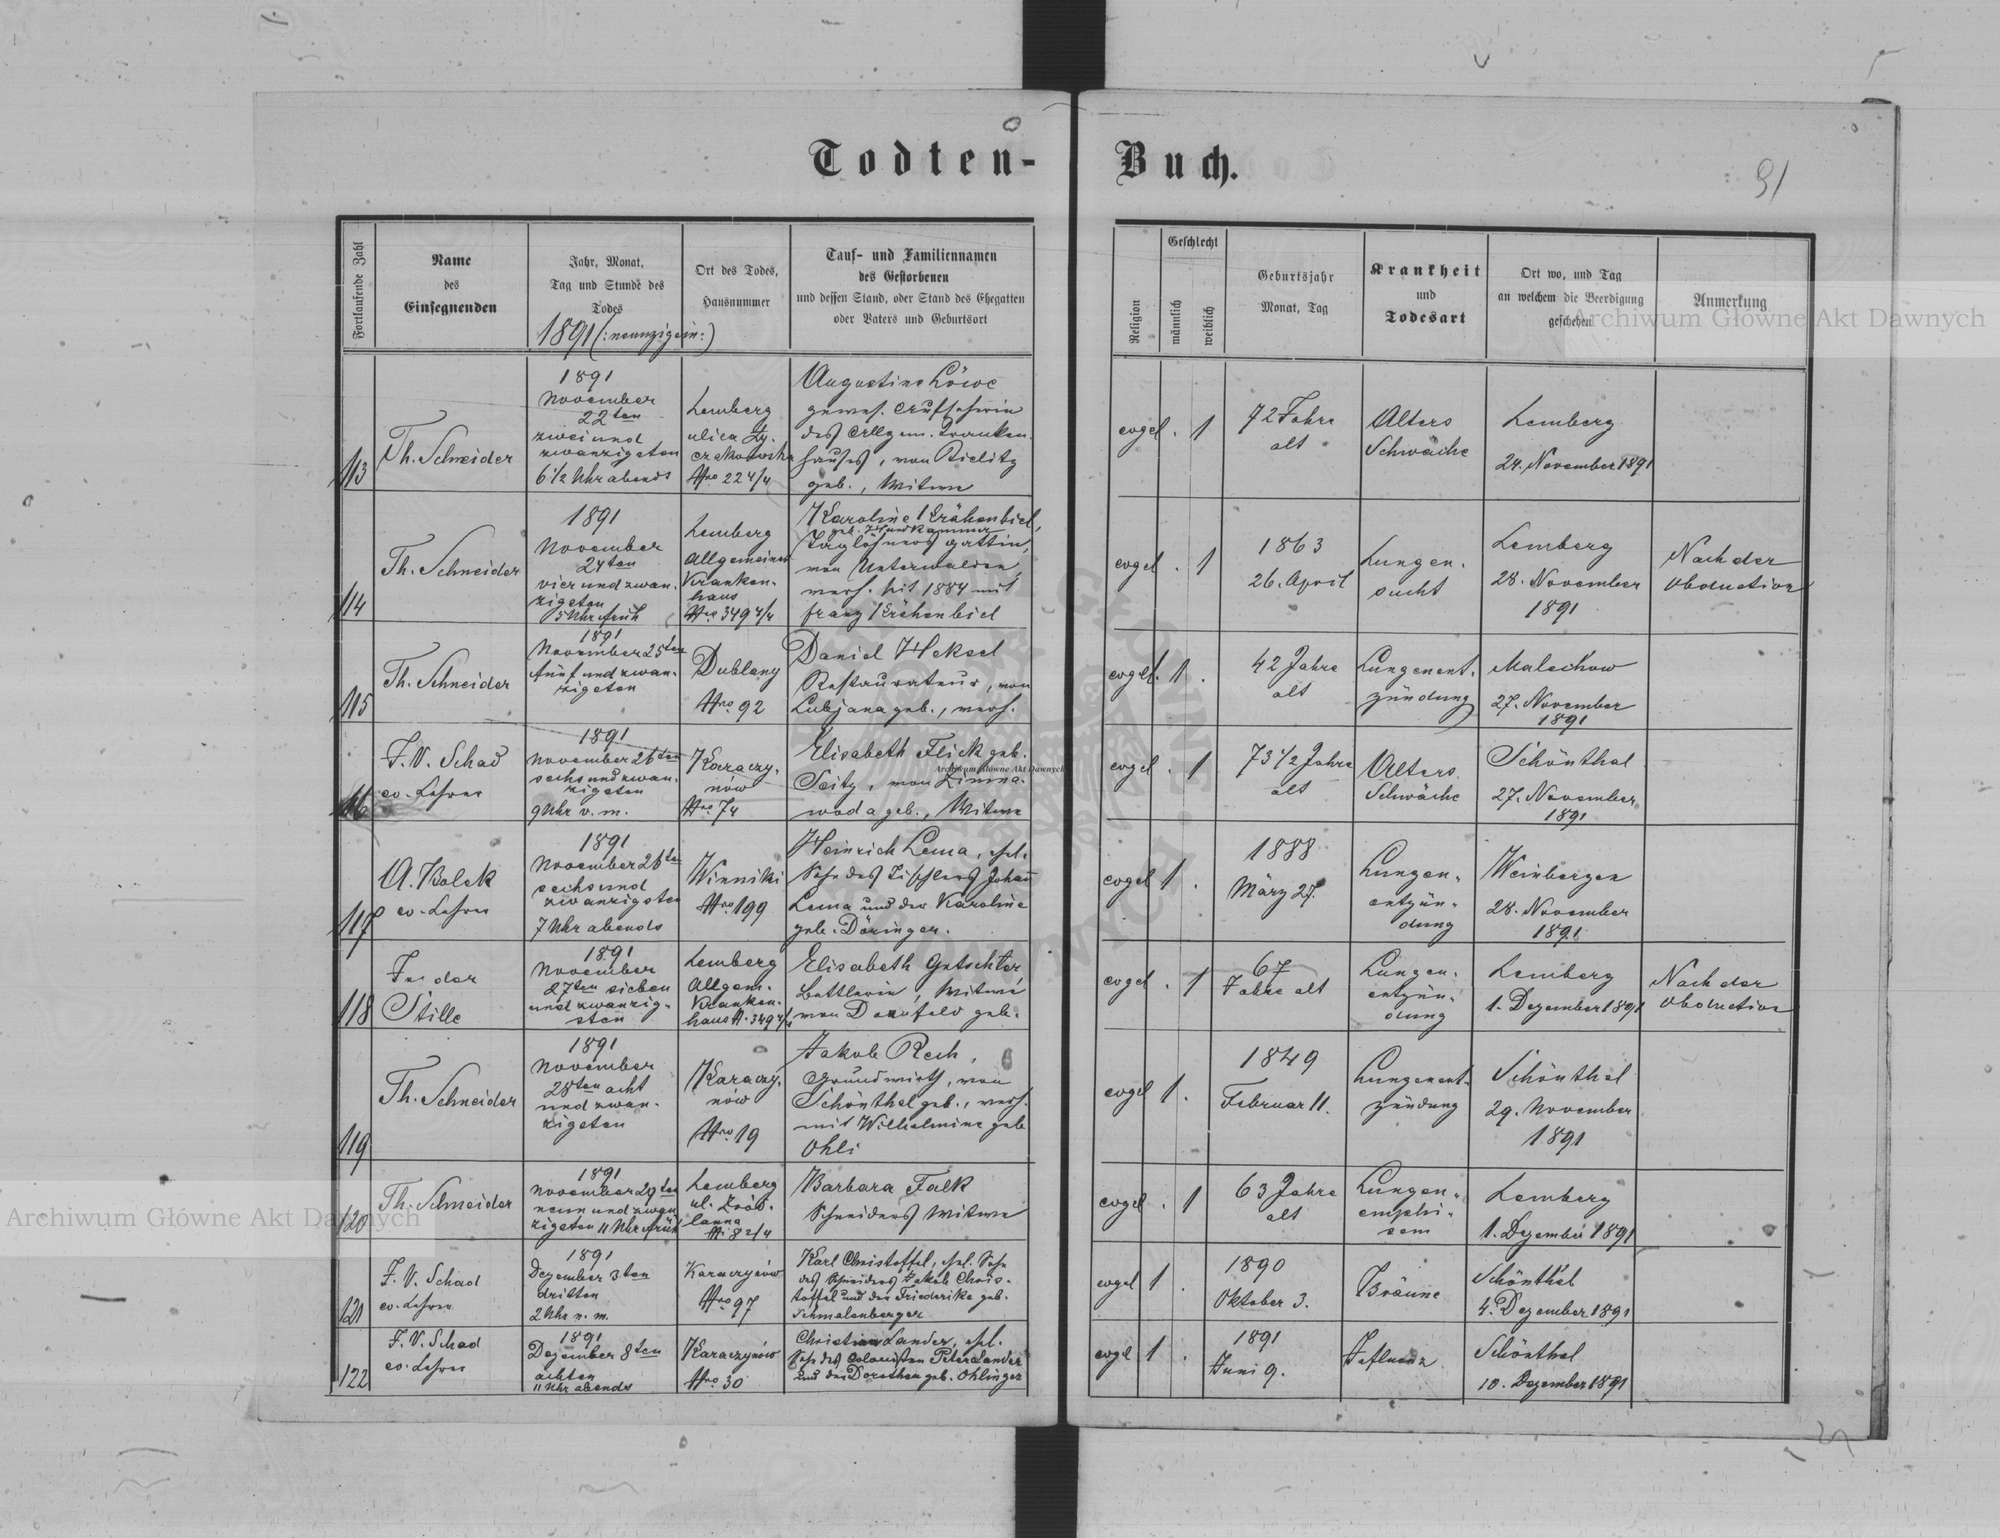 Todten-
Buch.
91
Fortlaufende Zahl
Name
des
Einsegnenden
Jahr, Monat,
Tag und Stunde des
Todes
1891 (:neunzigein:)
Ort des Todes,
Hausnummer
Tauf- und Familiennamen
des Gestorbenen
und dessen Stand, oder Stand des Ehegatten
oder Vaters und Geburtsort
Religion
Geschlecht
männlich
weiblich
Geburtsjahr
Monat, Tag
Krankheit
und
Todesart
Ort wo, und Tag
an welchem die Beerdigung
geschehen
Anmerkung
Archiwum Główne Akt Dawnych
113
Th. Schneider
1891
November
22ten
zwei und
zwanzigsten
6 1/2 Uhr abends
Lemberg
ulica Ły-
czakowska
Nro 22 4/4
Augustine Löwe
gewes. Aufseherin
des Allgem. Kranken-
hauses, von Bielitz
geb., Witwe
evgel
. 1
72 Jahre
alt
Alters
Schwäche
Lemberg
24. November 1891
114
Th. Schneider
1891
November
24ten
vier und zwan-
zigsten
5 Uhr früh
Lemberg
Allgemeines
Kranken-
haus
Nro 349 4/4
Karoline Krähenbiel,
geb.
Taglöhners gattin,
von Unterwalden,
verh. seit 1884 mit
Franz Krähenbiel
evgel
. 1
1863
26. April
Lungen-
sucht
Lemberg
28. November
1891
Nach der
Obduction
115
Th. Schneider
1891
November 25ten
fünf und zwan-
zigsten
Dublany
Nro 92
Daniel Heksel
Restaurateur, von
Lubjana geb., verh.
evgel.
1 .
42 Jahre
alt
Lungenent-
zündung
Malechow
27. November
1891
116
F. V. Schad
ev. Lehrer
1891
November 26ten
sechs und zwan-
zigsten
9 Uhr v. m.
Karaczy-
nów
Nro 74
Elisabeth Flick geb.
Seitz, von Zimna-
woda geb., Witwe
Archiwum Główne Akt Dawnych
evgel
. 1
73 1/2 Jahre
alt
Alters
Schwäche
Schönthal
27. November
1891
117
A. Bolek
ev. Lehrer
1891
November 26ten
sechs und
zwanzigsten
7 Uhr abends
Winniki
Nro 199
Heinrich Lema, ehel.
Sohn des Tischlers Johann
Lema und der Karoline
geb. Döringer.
evgel
1 .
1888
März 27.
Lungen-
entzün-
dung
Weinbergen
28. November
1891
118
In der
Stille
1891
November
27ten sieben
und zwanzig-
sten
Lemberg
Allgem.
Kranken-
haus N. 349 4/4
Elisabeth Getschter,
Bettlerin, Witwe
von Dornfeld geb.
evgel
. 1
67
Jahre alt
Lungen-
entzün-
dung
Lemberg
1. Dezember 1891
Nach der
Obduction
119
Th. Schneider
1891
November
28ten acht
und zwan-
zigsten
Karaczy-
nów
Nro 19
Jakob Rech,
Grundwirth, von
Schönthal geb., verh.
mit Wilhelmine geb
Ohli
evgel
1 .
1849
Februar 11.
Lungenent-
zündung
Schönthal
29. November
1891
120
Th. Schneider
1891
November 29ten
neun und zwan-
zigsten 11 Uhr früh
Lemberg
ul. Źród-
lanna
N. 8 2/4
Barbara Falk
Schneiders Witwe
evgel
. 1
63 Jahre
alt
Lungen-
emphi-
sem
Lemberg
1. Dezember 1891
Archiwum Główne Akt Dawnych
121
F. V. Schad
ev. Lehrer
1891
Dezember 3ten
dritten
2 Uhr n. m.
Karaczynów
Nro 97
Karl Christoffel, ehel. Sohn
des Schneiders Jakob Chris-
toffel und der Friederike geb.
Schmalenberger
evgel
1 .
1890
Oktober 3.
Bräune
Schönthal
4. Dezember 1891
122
F. V. Schad
ev. Lehrer
1891
Dezember 8ten
achten
11 Uhr abends
Karaczynów
Nro 30
Christian Lander, ehel.
Sohn des Colonisten Peter Lander
und der Dorothea geb. Ohlinger
evgel
1 .
1891
Juni 9.
Influenz
Schönthal
10. Dezember 1891